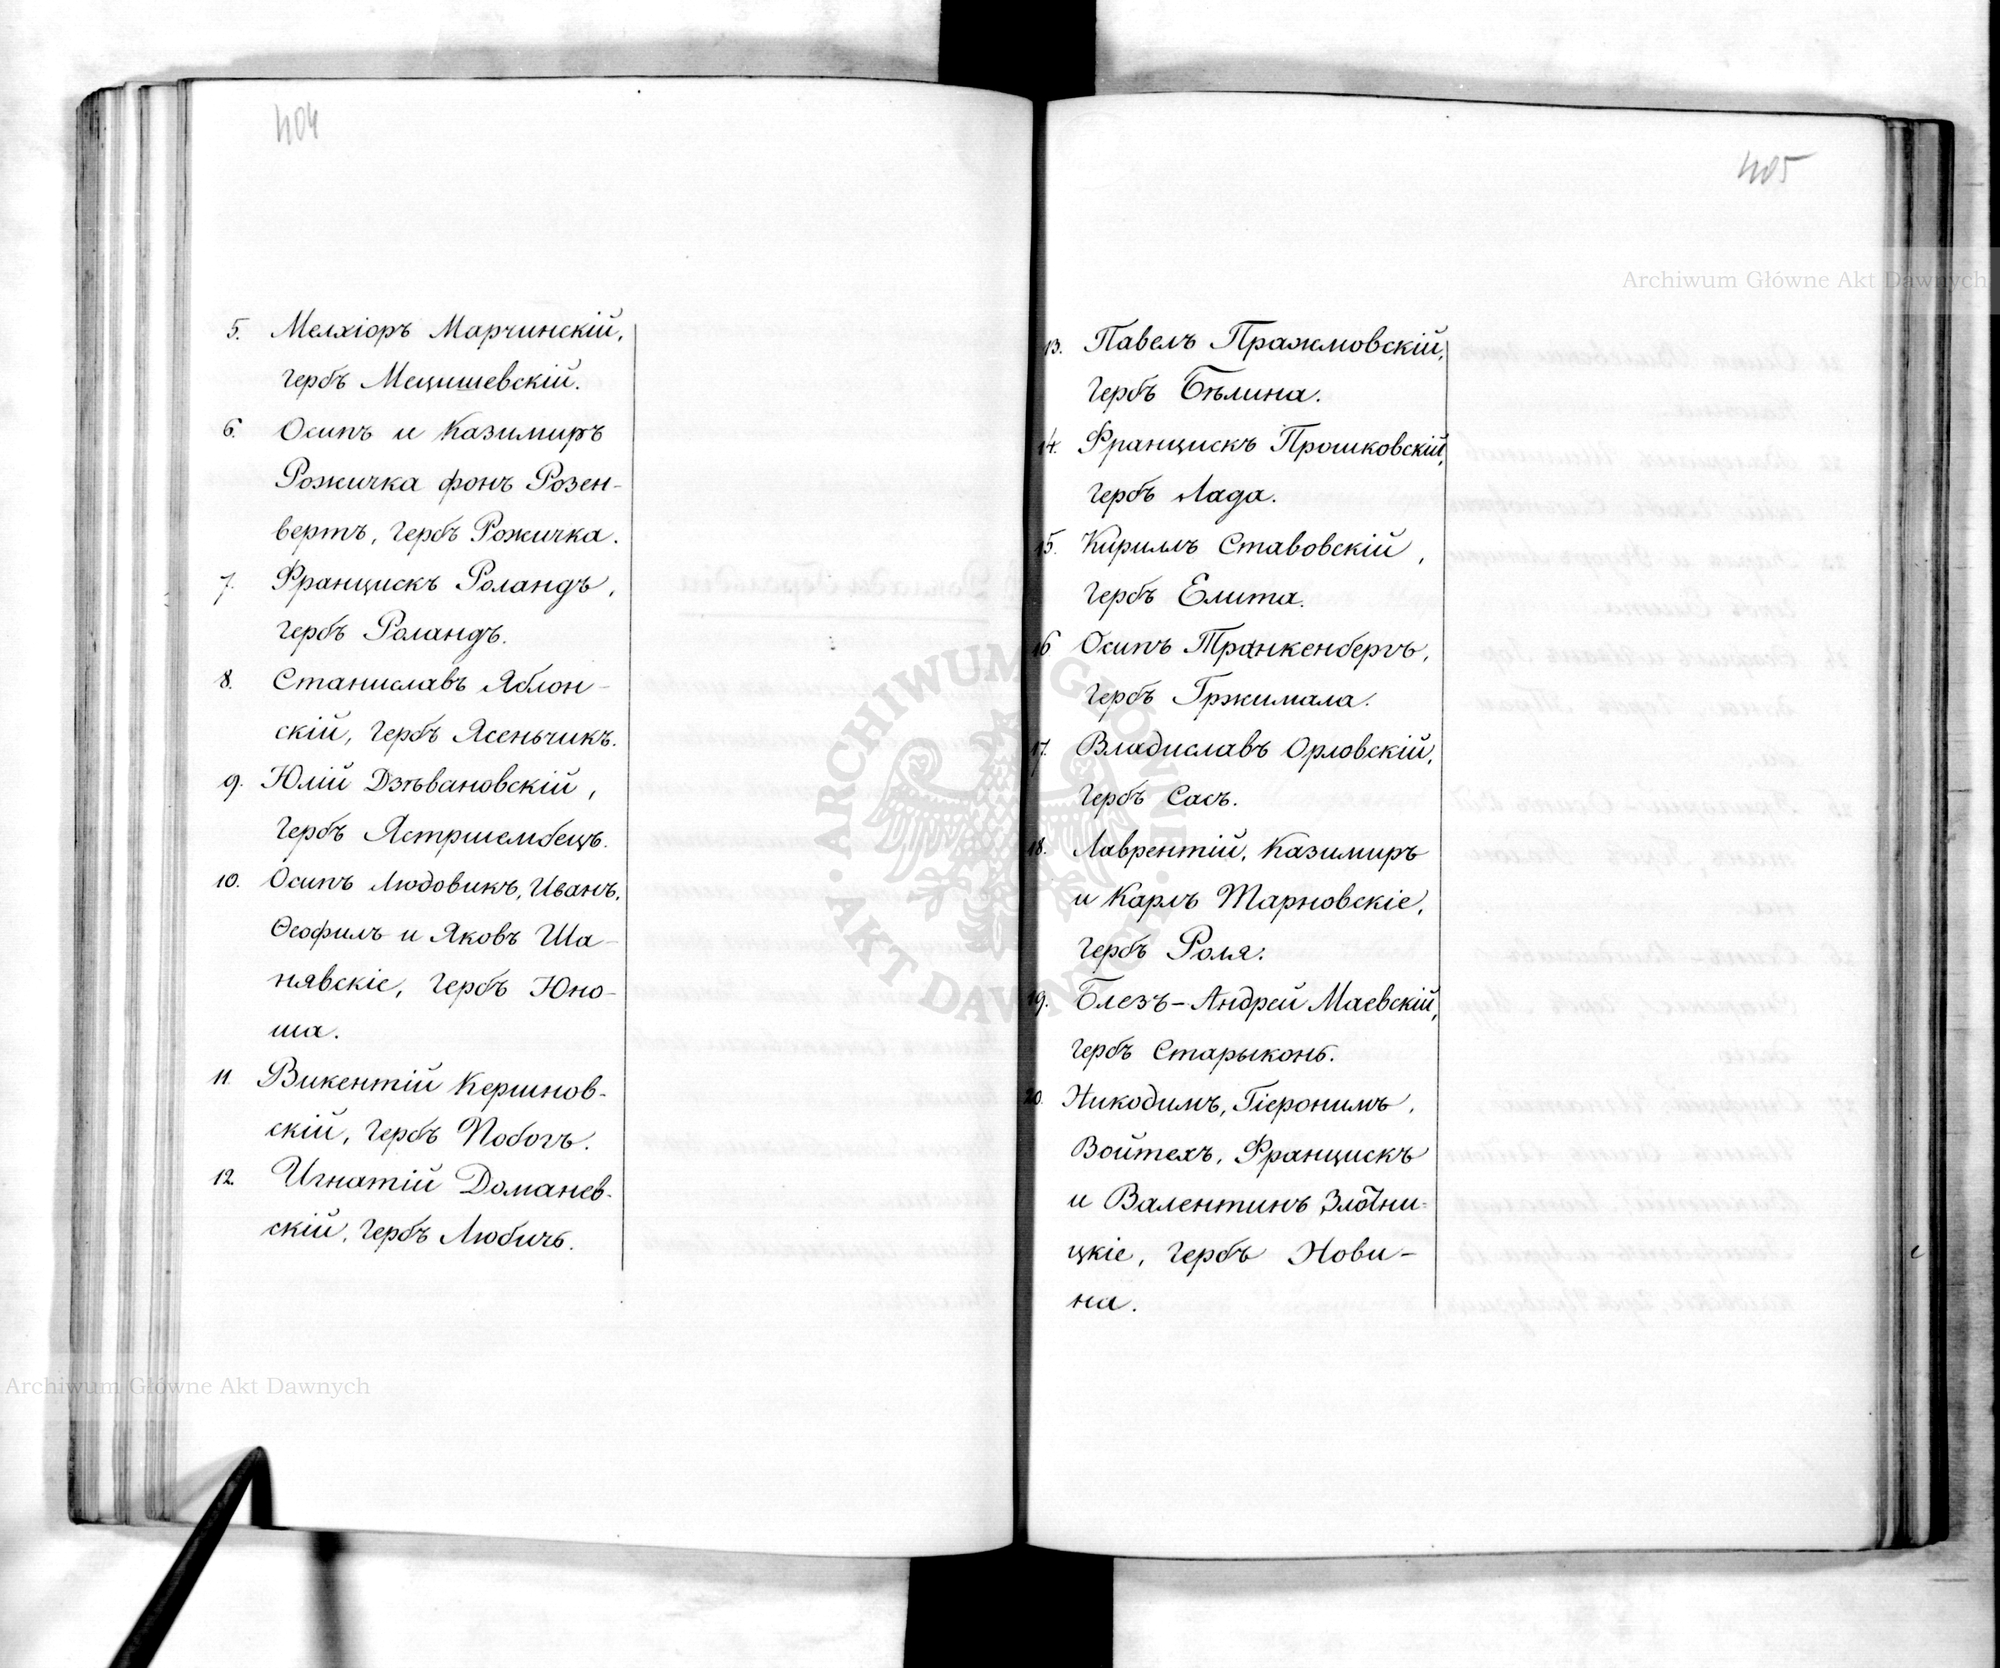 404
5. Мелхіоръ Марчинскій,
гербъ Мецишевскій.
6. Осипъ и Казимиръ
Рожичка фонъ Розен-
вертъ, гербъ Рожичка.
7. Францискъ Роландъ,
гербъ Роландъ.
8. Станиславъ Яблон-
скій, гербъ Ясеньчикъ.
9. Юлій Дзѣвановскій,
гербъ Ястршембецъ.
10. Осипъ Людовикъ, Иванъ,
Ѳеофилъ и Яковъ Ша-
нявскіе, гербъ Юно-
ша.
11. Викентій Кершнов-
скій, гербъ Побогъ.
12. Игнатій Доманев-
скій, гербъ Любичъ.
405
13. Павелъ Пражмовскій,
гербъ Бѣлина.
14. Францискъ Прошковскій,
гербъ Лада.
15. Кириллъ Ставовскій,
гербъ Елита.
16 Осипъ Транкенбергъ,
гербъ Гржимала.
17. Владиславъ Орловскій,
гербъ Сасъ.
18. Лаврентій, Казимиръ
и Карлъ Тарновскіе,
гербъ Роля.
19. Блезъ-Андрей Маевскій,
гербъ Старыконь.
20. Никодимъ, Гіеронимъ,
Войтехъ, Францискъ
и Валентинъ Злотни-
цкіе, гербъ Нови-
на.
Archiwum Główne Akt Dawnych
ARCHIWUM GŁÓWNE AKT DAWNYCH
Archiwum Główne Akt Dawnych